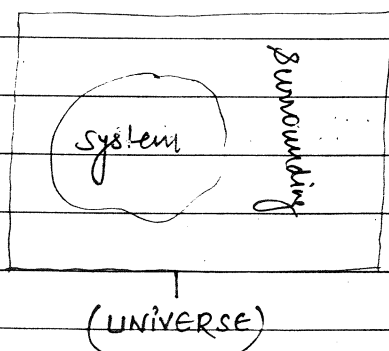 system
surrounding
(UNIVERSE)